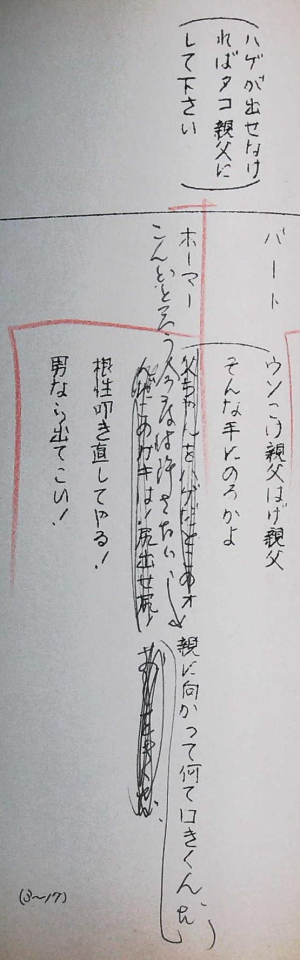 (ハゲが出せなけ
ればタコ親父に
して下さい)
バート
ウソこけ親父はげ親父
そんな手にのるかよ
ホーマー
父ちゃんをハゲだとこのオ
親に向かって何て口きくんだ
こんどとゆう今度は許さない
このガキは!尻出せ尻!
根性叩き直してやる!
男なら出てこい!
(3〜17)